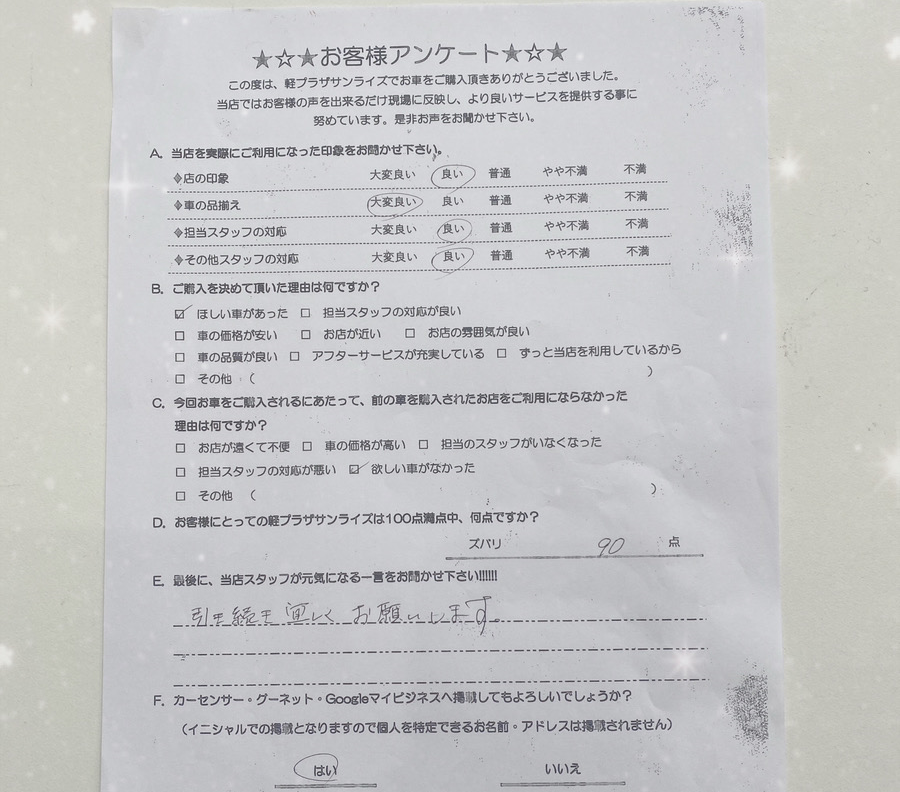 ★☆★お客様アンケート★☆★
この度は、軽プラザサンライズでお車をご購入頂きありがとうございました。
当店ではお客様の声を出来るだけ現場に反映し、より良いサービスを提供する事に
努めています。是非お声をお聞かせ下さい。
A. 当店を実際にご利用になった印象をお聞かせ下さい。
◆店の印象 大変良い 良い 普通 やや不満 不満
◆車の品揃え 大変良い 良い 普通 やや不満 不満
◆担当スタッフの対応 大変良い 良い 普通 やや不満 不満
◆その他スタッフの対応 大変良い 良い 普通 やや不満 不満
B. ご購入を決めて頂いた理由は何ですか？
☑ ほしい車があった □ 担当スタッフの対応が良い
□ 車の価格が安い □ お店が近い □ お店の雰囲気が良い
□ 車の品質が良い □ アフターサービスが充実している □ ずっと当店を利用しているから
□ その他 （ ）
C. 今回お車をご購入されるにあたって、前の車を購入されたお店をご利用にならなかった
理由は何ですか？
□ お店が遠くて不便 □ 車の価格が高い □ 担当のスタッフがいなくなった
□ 担当スタッフの対応が悪い ☑ 欲しい車がなかった
□ その他 （ ）
D. お客様にとっての軽プラザサンライズは100点満点中、何点ですか？
ズバリ 90 点
E. 最後に、当店スタッフが元気になる一言をお聞かせ下さい!!!!!!
引き続き宜しくお願いします。
F. カーセンサー・グーネット・Googleマイビジネスへ掲載してもよろしいでしょうか？
（イニシャルでの掲載となりますので個人を特定できるお名前・アドレスは掲載されません）
はい いいえ